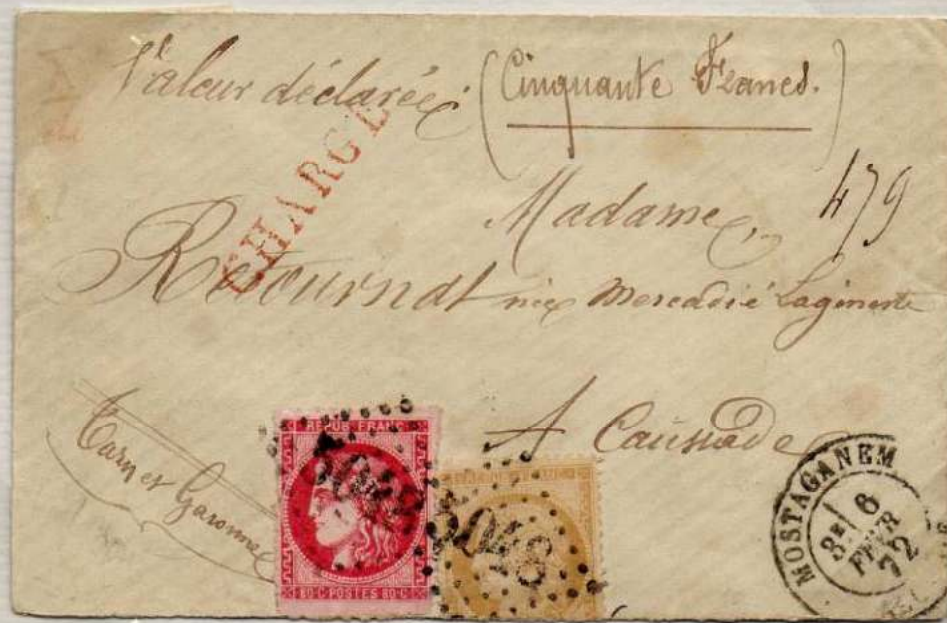 Valeur déclarée (Cinquante Francs.)
CHARGÉ
479
Madame
Retournat née Mercadié Lagineste
A Caussade
Tarn et Garonne
REPUB. FRANC.
80·C·POSTES 80·C·
5048
5048
MOSTAGANEM
3E
6
FEVR
72